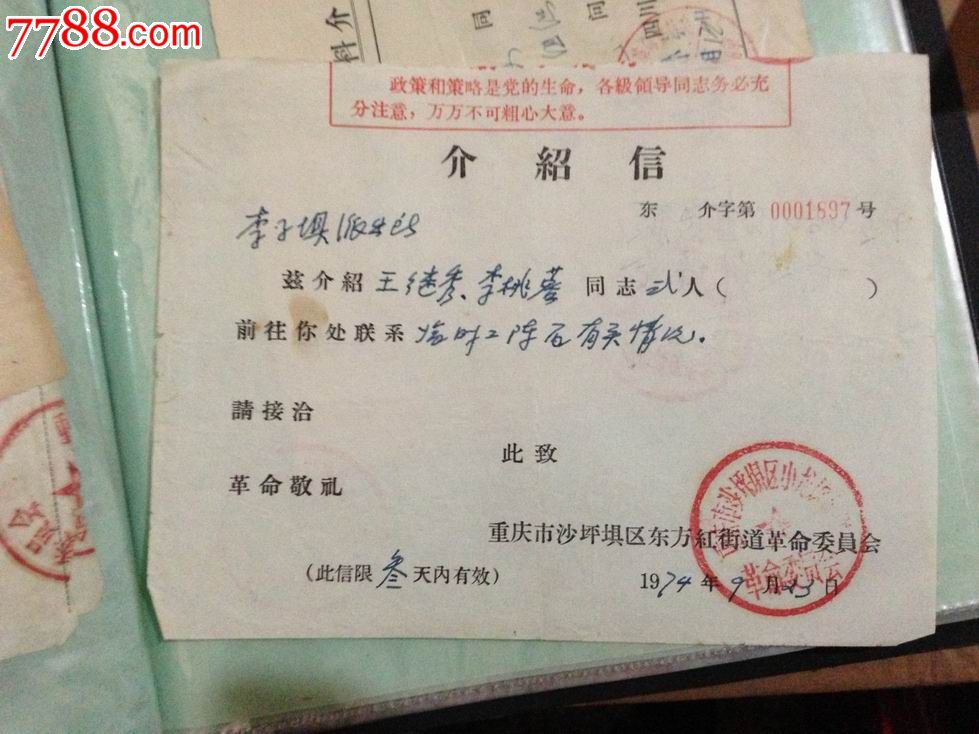 7788.com
料介
同
同
四川
政策和策略是党的生命，各級領导同志务必充
分注意，万万不可粗心大意。
介紹信
东 介字第 0001897 号
李子埧派出所
茲介紹 王继秀、李桃蓉 同志 弍人（ ）
前往你处联系 临时工陈 有关情况。
請接洽
此致
革命敬礼
重庆市沙坪埧区东方紅街道革命委員会
(此信限叁天內有效) 1974年9月23日
重庆市沙坪埧区小龙
革命委员会